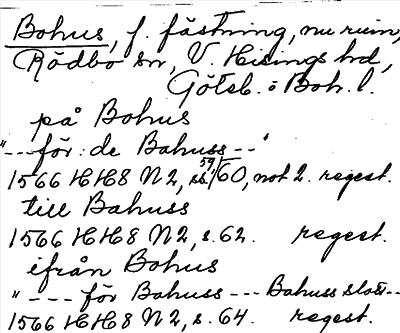 Bohus, f. fästning, nu ruin,
Rödbo sn, V. Hisings hd,
Göteb. o Boh. l.
på Bohus
"--- för: de Bahuss --"
1566 HH8 N2, s. 59/60, not 2. regest.
till Bahuss
1566 HH8 N2, s. 62. regest.
ifrån Bohus
"--- för Bahuss --- Bahuss slott--
1566 HH8 N2, s. 64. regest.